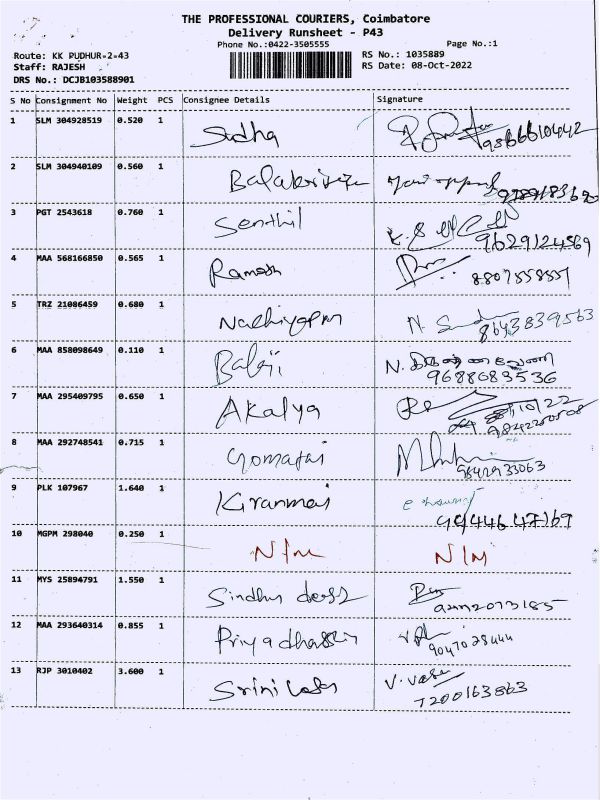 THE PROFESSIONAL COURIERS, Coimbatore
Delivery Runsheet - P43
Phone No.:0422-3505555
Page No.:1
Route: KK PUDHUR-2-43
Staff: RAJESH
DRS No.: DCJB103588901
RS No.: 1035889
RS Date: 08-Oct-2022
S No Consignment No Weight PCS Consignee Details Signature
1 SLM 304928519 0.520 1 Sudha
9866610442
2 SLM 304940109 0.560 1
3 PGT 2543618 0.760 1 Senthil
9629124569
4 MAA 568166850 0.565 1 Ramesh
8807558557
5 TRZ 21086459 0.680 1
8643839563
6 MAA 858098649 0.110 1 Balaji N.
9688083536
7 MAA 295409795 0.650 1 Akalya
8 MAA 292748541 0.715 1
9842933063
9 PLK 107967 1.640 1 Kiranmai
10 MGPM 298040 0.250 1
11 MYS 25894791 1.550 1 Sindhu
12 MAA 293640314 0.855 1
9047028444
13 RJP 3010402 3.600 1 V.
7200163863